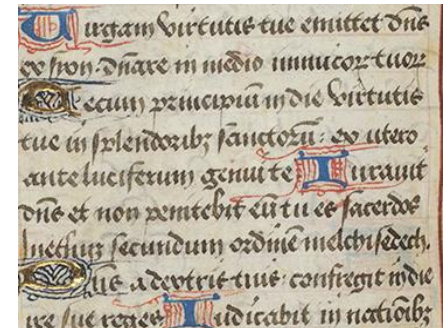 Uirgam virtutis tue emittet dns
ex syon. dnare in medio inimicor tuor
Tecum principiu in die virtutis
tue in splendorib; sanctoru: ex utero
ante luciferum genui te Iurauit
dns et non penitebit eu tu es sacerdos
inethuz secundum ordine melchisedech.
Dns a dextris tuis. confregit in die
ire sue reges Iudicabit in nationib;